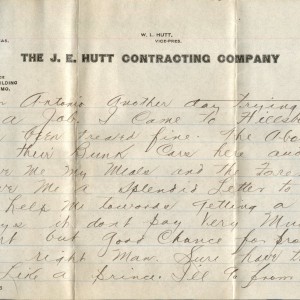 W. L. HUTT,
VICE-PRES.
THE J. E. HUTT CONTRACTING COMPANY
BUILDING
MO.
Antonio Another day trying
a Job. I Came to Hillsb
been treated fine. The
their Bunk Cars here and
me my Meals and the Fore
Me a Splendid Letter to
help Me towards getting a
it dont pay very Muc
but good Chance for pro
right Man. Sure have
Like a prince. Ill to from